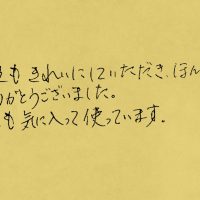 もきれいにしていただき、ほん
がとうございました。
も気に入って使っています。